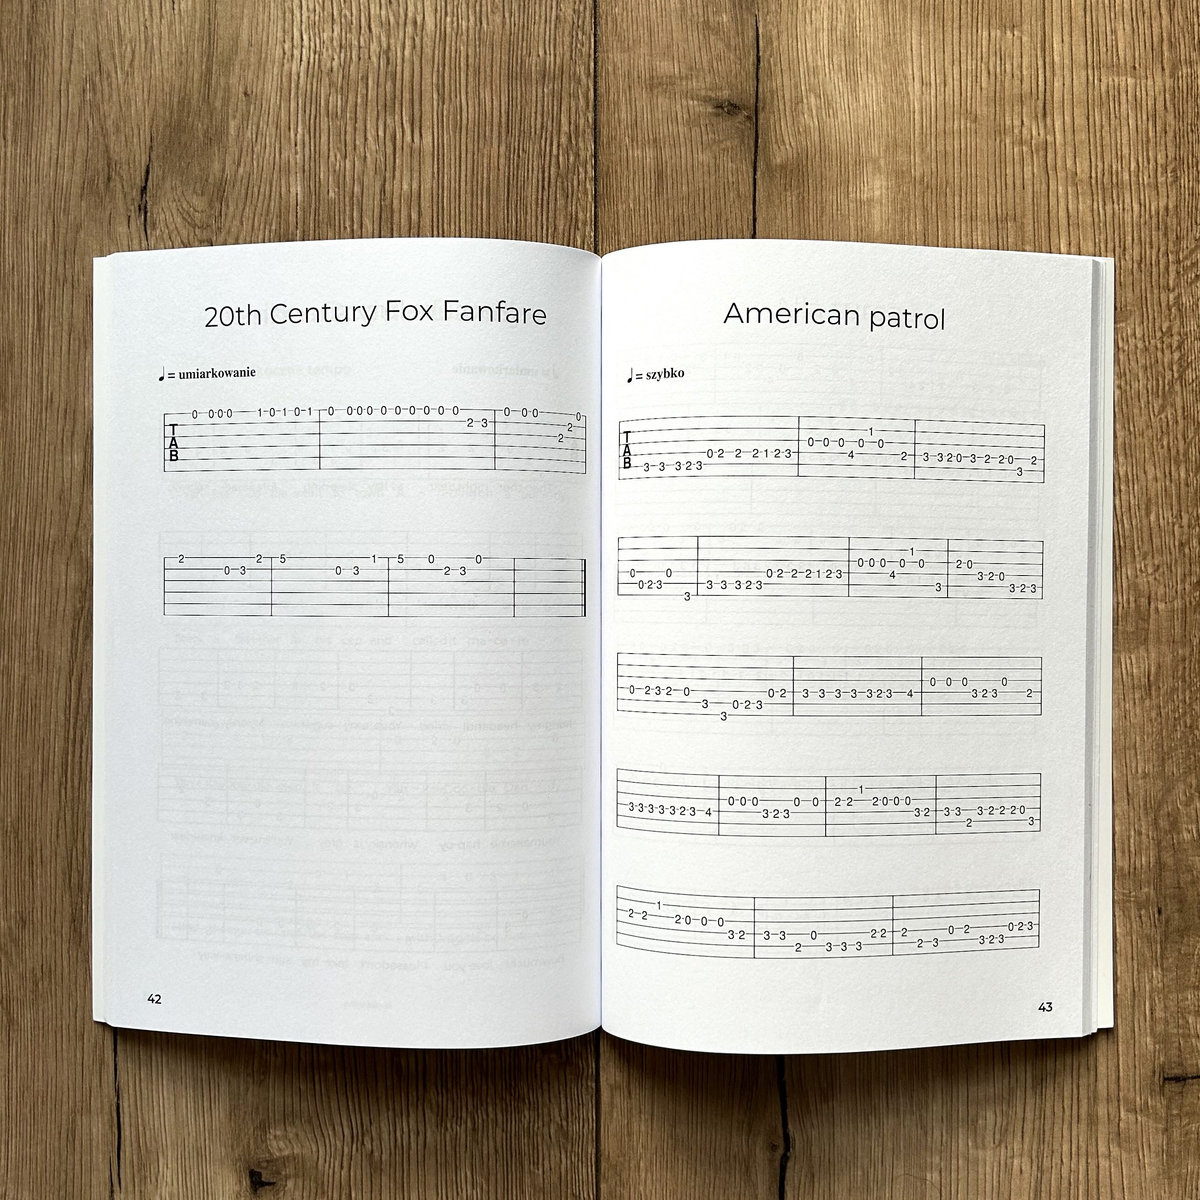 20th Century Fox Fanfare
♩ = umiarkowanie
T
A
B
0 0 0 0 1 0 1 0 1 0 0 0 0 0 0 0 0 0 0 2 3 0 0 0 2 2 0
2 0 3 2 5 0 3 1 5 0 2 3 0
42
American patrol
♩ = szybko
T
A
B
3 3 3 2 3 0 2 2 2 1 2 3 0 0 0 4 0 1 0 2 3 3 2 0 3 2 2 0 3 2
0 0 2 3 0 3 3 3 3 2 3 0 2 2 2 1 2 3 0 0 0 4 0 1 0 3 2 0 3 2 0 3 2 3
0 2 3 2 0 3 3 0 2 3 0 2 3 3 3 3 3 2 3 4 0 0 0 3 2 3 0 2
3 3 3 3 3 2 3 4 0 0 0 3 2 3 0 0 2 2 1 2 0 0 0 3 2 3 3 2 3 2 2 2 0 3
2 2 1 2 0 0 0 3 2 3 3 2 0 3 3 3 2 2 2 2 3 0 2 3 2 3 0 2 3
43